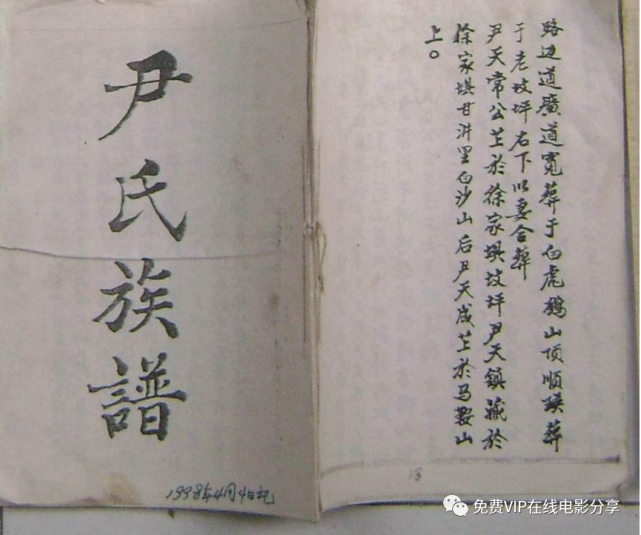 尹氏族譜
1998年4月4日记
路边道廣道寬葬于白虎鹅山顶顺瑛葬
于老坟坪右下以妻合葬
尹天常公芷於徐家埧坟坪尹天鎮藏於
徐家埧甘洪里白沙山后尹天成芷於马鞍山
上。
18
免费VIP在线电影分享